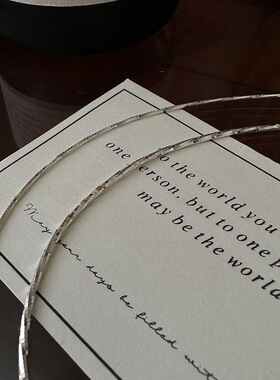 to the world you
one person, but to one
may be the world
May your days be filled with